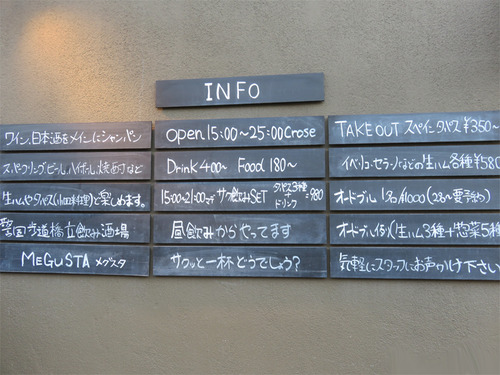 INFO
ワイン、日本酒をメインにシャンパン
スパークリング、ビール、ハイボール、焼酎など
生ハムやタパス(小皿料理)と楽しめます。
歩道橋立飲み酒場
MEGUSTA メグスタ
open 15:00〜25:00 Crose
Drink 400〜 Food 180〜
15:00〜21:00まで サク飲みSET タパス3種+ドリンク=980
昼飲みからやってます
サクッと一杯どうでしょう?
TAKE OUT スペインタパス ¥350〜
イベリコ・セラーノなどの生ハム各種¥580
オードブル 1名¥1000(2名〜要予約)
オードブル例(生ハム3種+惣菜5種
気軽にスタッフにお声かけ下さい